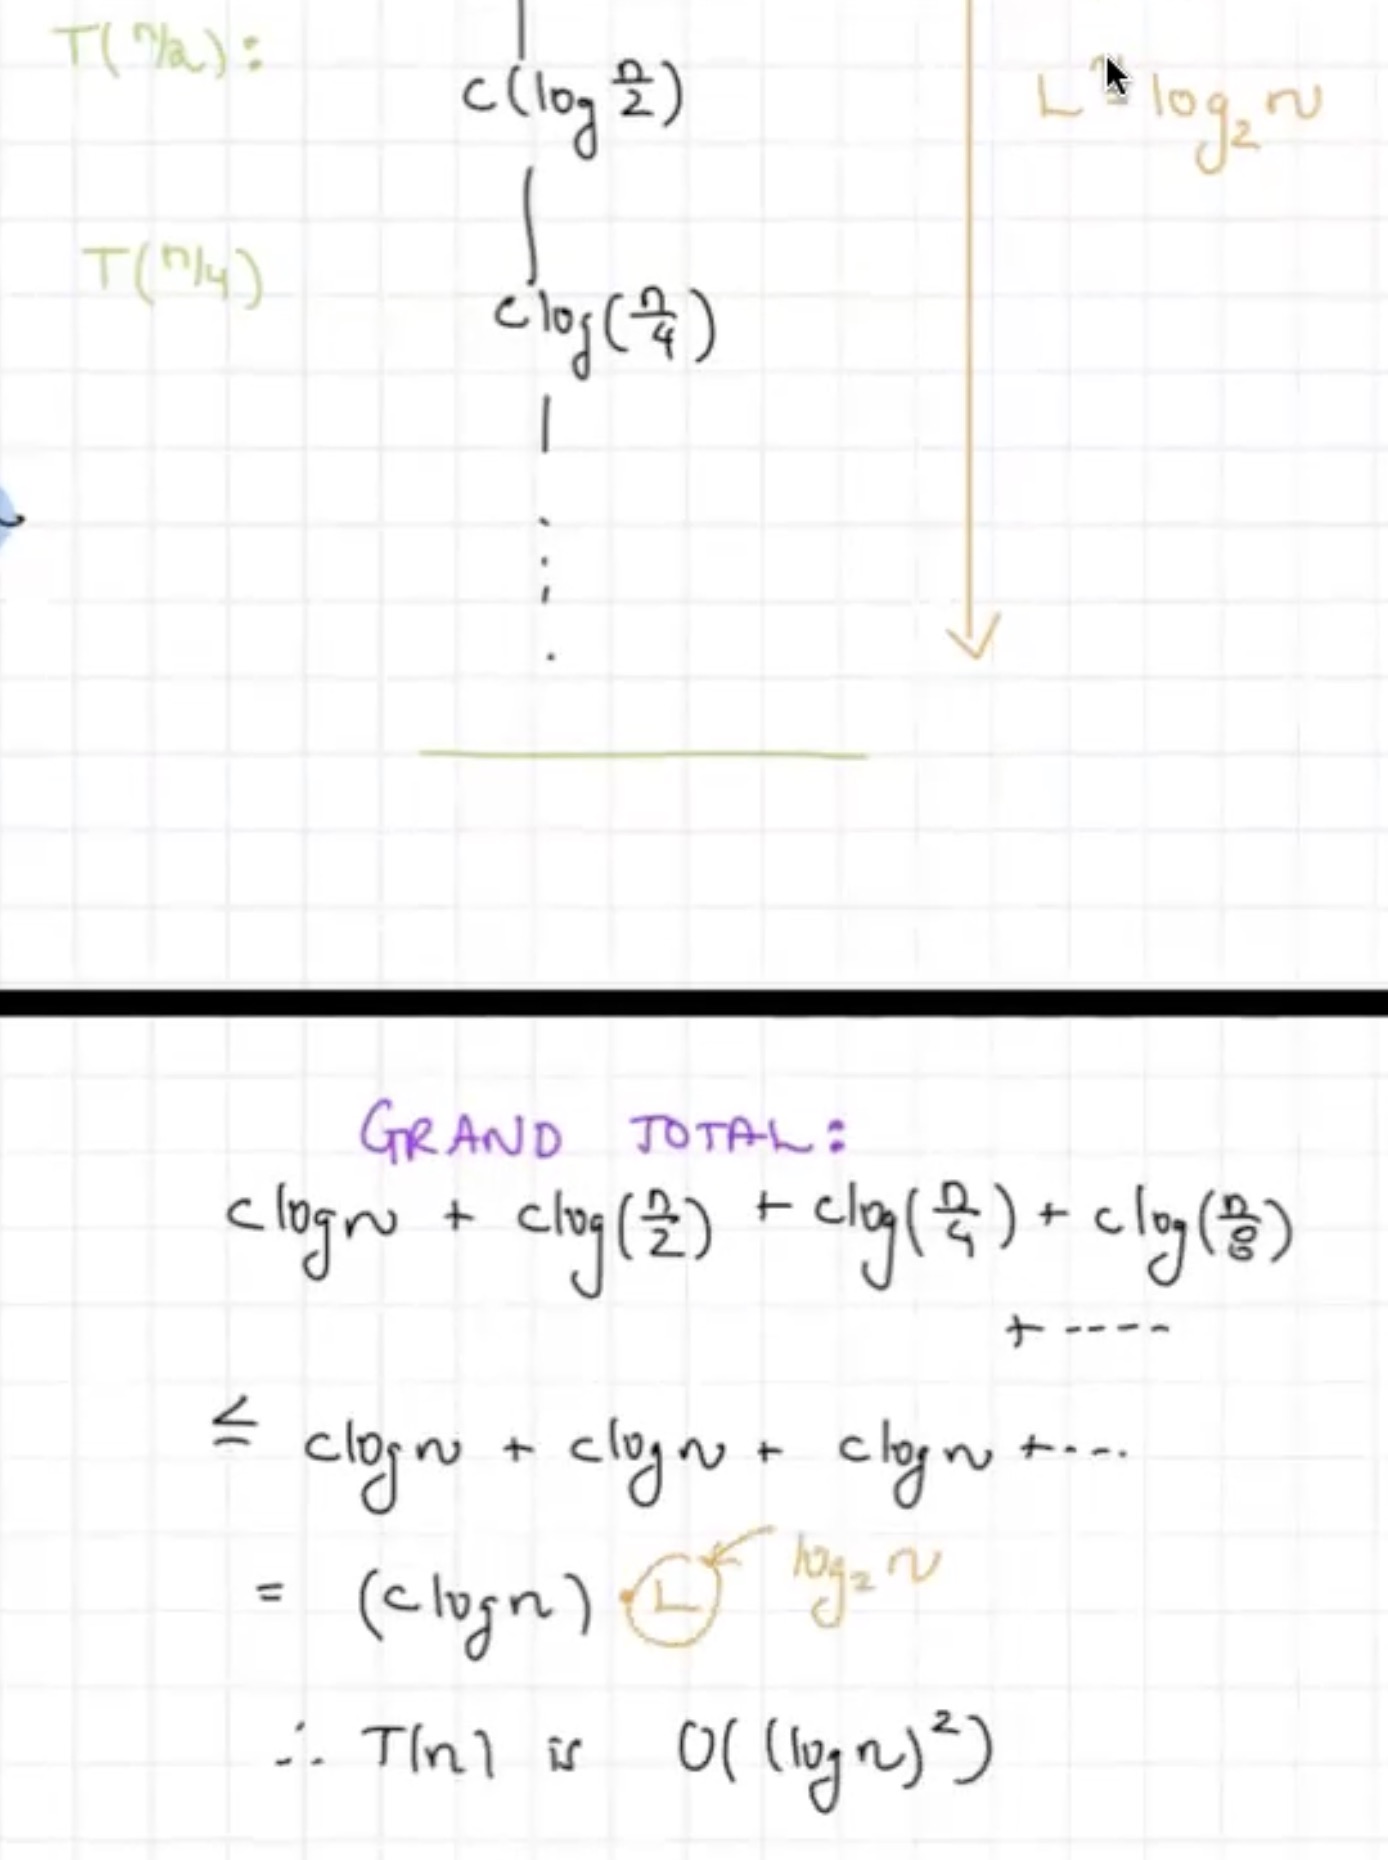 T(n/2):
c(log n/2)
L ≈ log₂ n
T(n/4)
c log(n/4)
GRAND TOTAL:
c log n + c log(n/2) + c log(n/4) + c log(n/8)
+ ----
≤ c log n + c log n + c log n + ....
= (c log n) L log₂ n
∴ T(n) is O((log n)²)